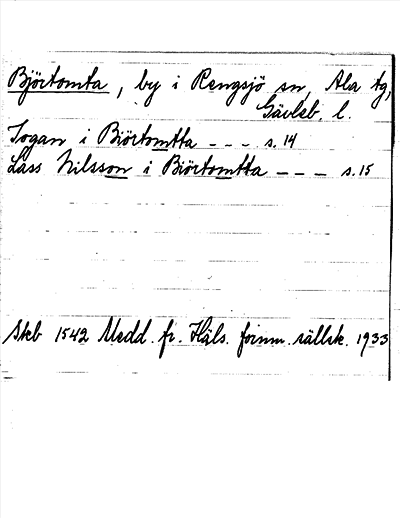 Björtomta, by i Rengsjö sn, Ala tg,
Gävleb. l.
Jogan i Biörtomtta - - - s. 14
Lass Nilsson i Biörtomtta - - - s. 15
Skb 1542 Medd. fr. Häls. fornm. sällsk. 1933